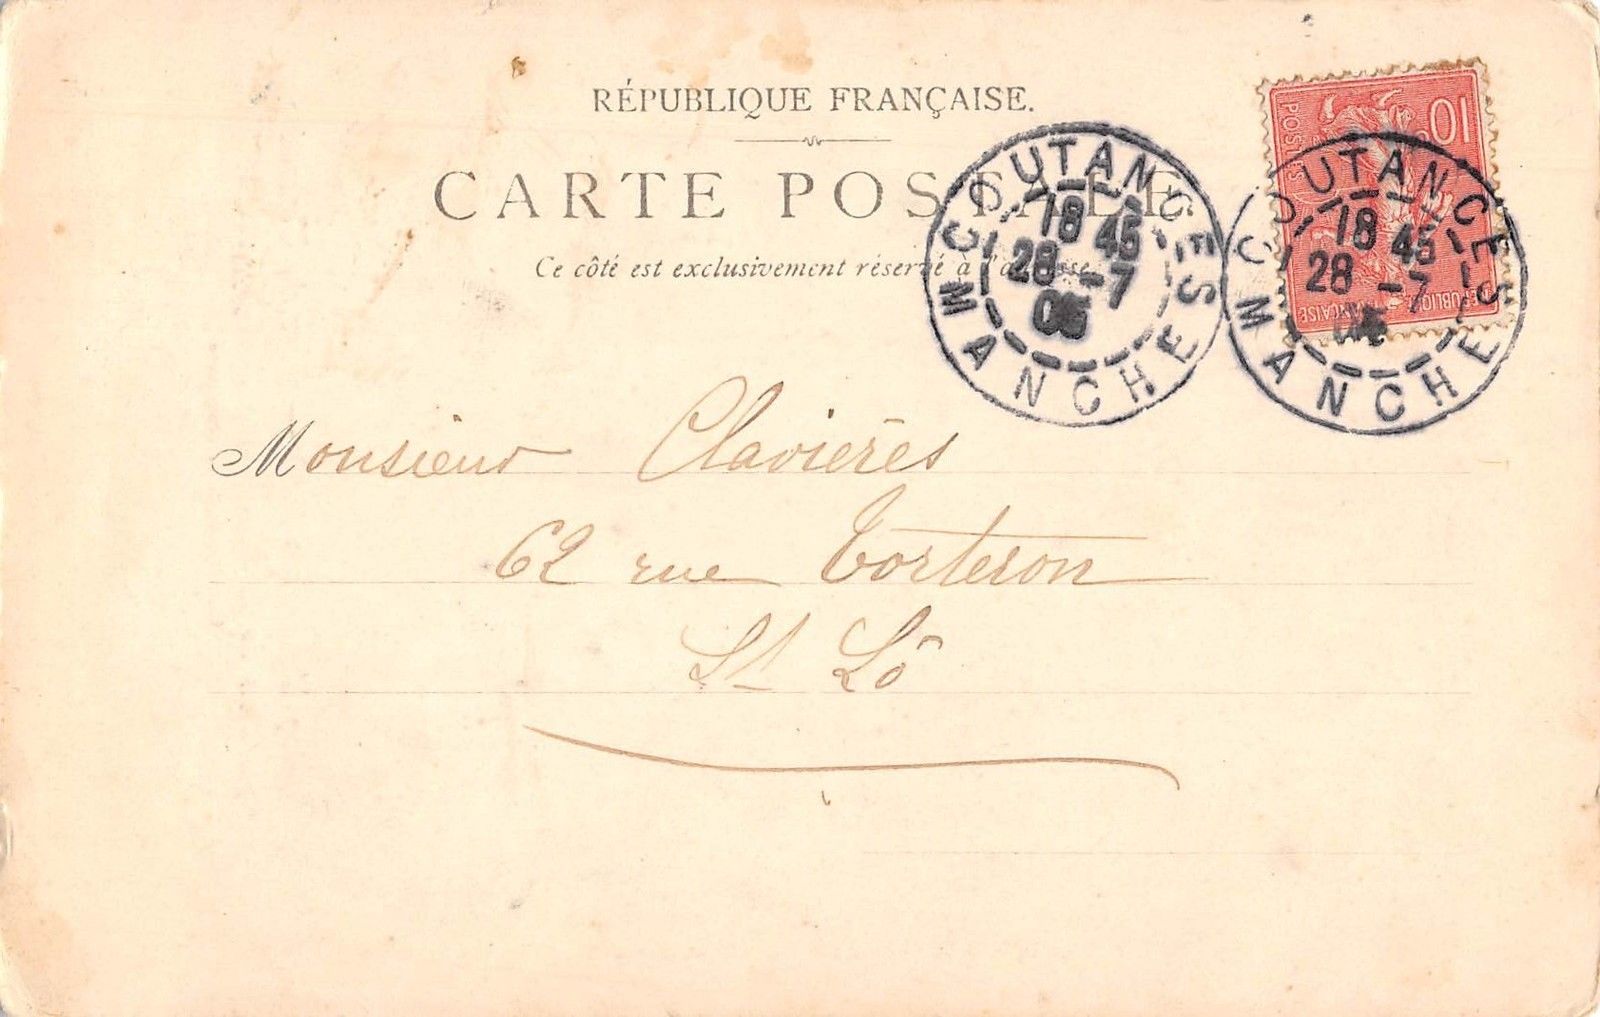 RÉPUBLIQUE FRANÇAISE.
CARTE POSTALE
Ce côté est exclusivement réservé à l'adresse
COUTANCES
18 45
28 -7
MANCHE
COUTANCES
18 45
28 -7
MANCHE
10c
POSTES
RÉPUBLIQUE
FRANÇAISE
Monsieur Clavières
62 rue Torteron
St Lô